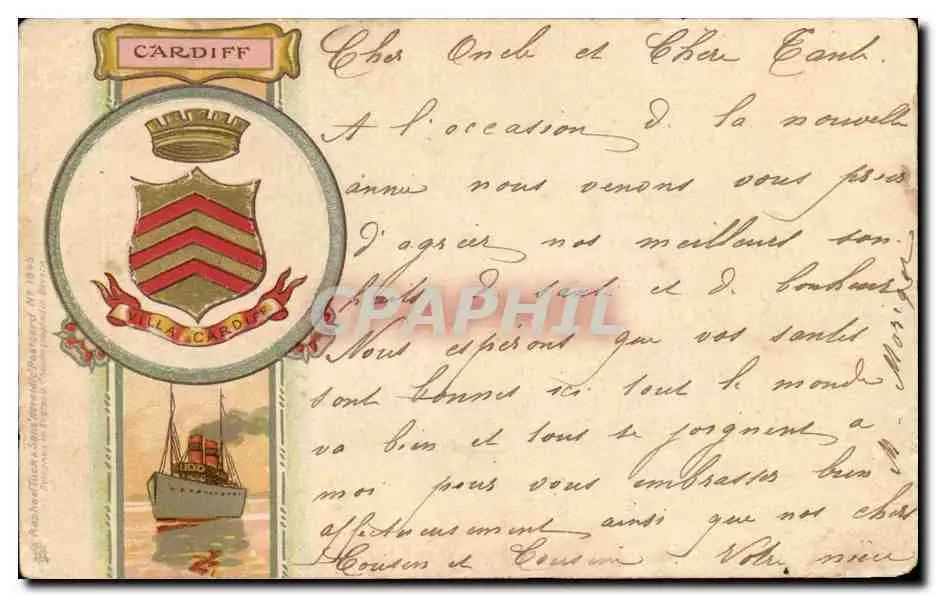 CARDIFF
VILLA CARDIFF
Raphael Tuck & Sons' "Heraldic" Postcard Nº 1645
Cher Oncle et Chère Tante.
A l'occasion de la nouvelle
année nous venons vous prier
d'agréer nos meilleurs sou-
haits de santé et de bonheur
Nous espérons que vos santés
sont bonnes ici tout le monde
va bien et tous se joignent a
moi pour vous embrasser bien
affectueusement ainsi que nos chers
Cousin et Cousine. Votre nièce
CPAPHIL